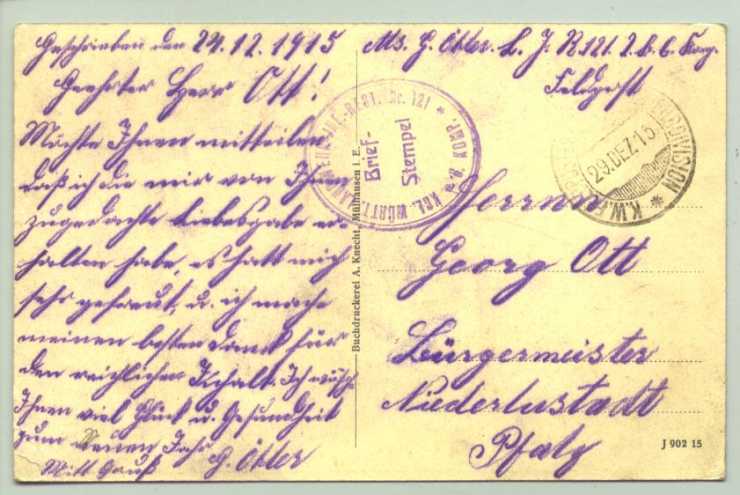 Geschrieben den 24.12.1915
Geehrter Herr Ott!
Möchte Ihnen mitteilen
daß ich die mir von Ihnen
zugedachte Liebesgabe er-
halten habe, es hatt mich
sehr gefreut, u. ich mache
meinen besten Dank für
den reichlichen Inhalt. Ich wünsche
Ihnen viel Glück u. Gesundheit
zum Neuen Jahr
Mitt Gruß G.
G. L. J. R. 121. 2. b. 6. Komp.
Feldpost
LANDWEHR-INF.-REGT. Nr. 121 * KGL. WÜRTT. * KORP.
Brief-
Stempel
29.DEZ.15
K.W.
DIVISION
Herrnn
Georg Ott
Bürgermeister
Niederlustadt
Pfalz
Buchdruckerei A. Knecht, Mülhausen i. E.
J 902 15